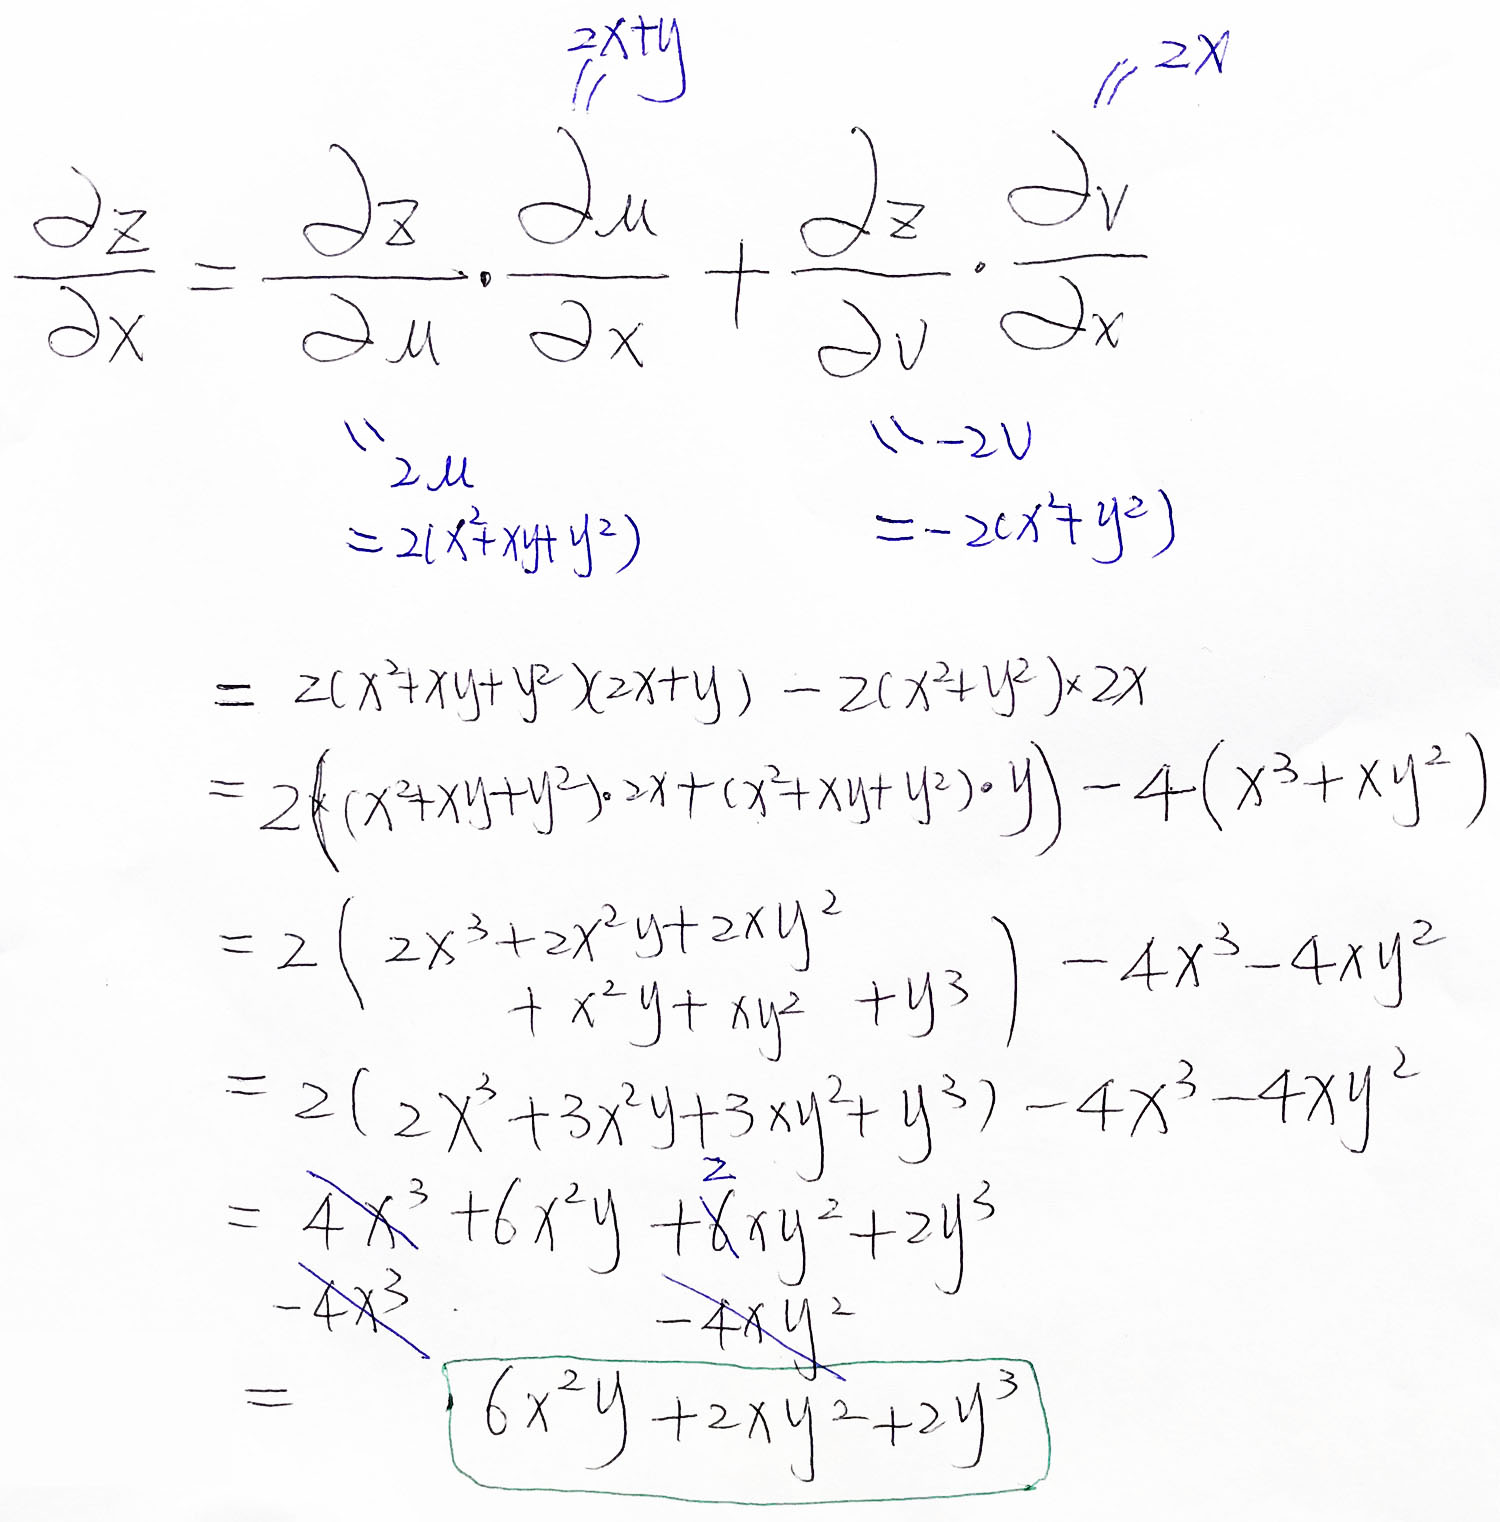 2x+y 2x
∂z/∂x = ∂z/∂u · ∂u/∂x + ∂z/∂v · ∂v/∂x
2u -2v
=2(x²+xy+y²) =-2(x²+y²)
= 2(x²+xy+y²)(2x+y) - 2(x²+y²)×2x
= 2((x²+xy+y²)·2x+(x²+xy+y²)·y) - 4(x³+xy²)
= 2(2x³+2x²y+2xy²
+x²y+xy²+y³) - 4x³-4xy²
= 2(2x³+3x²y+3xy²+y³) - 4x³-4xy²
2
= 4x³+6x²y+6xy²+2y³
-4x³ -4xy²
= 6x²y+2xy²+2y³